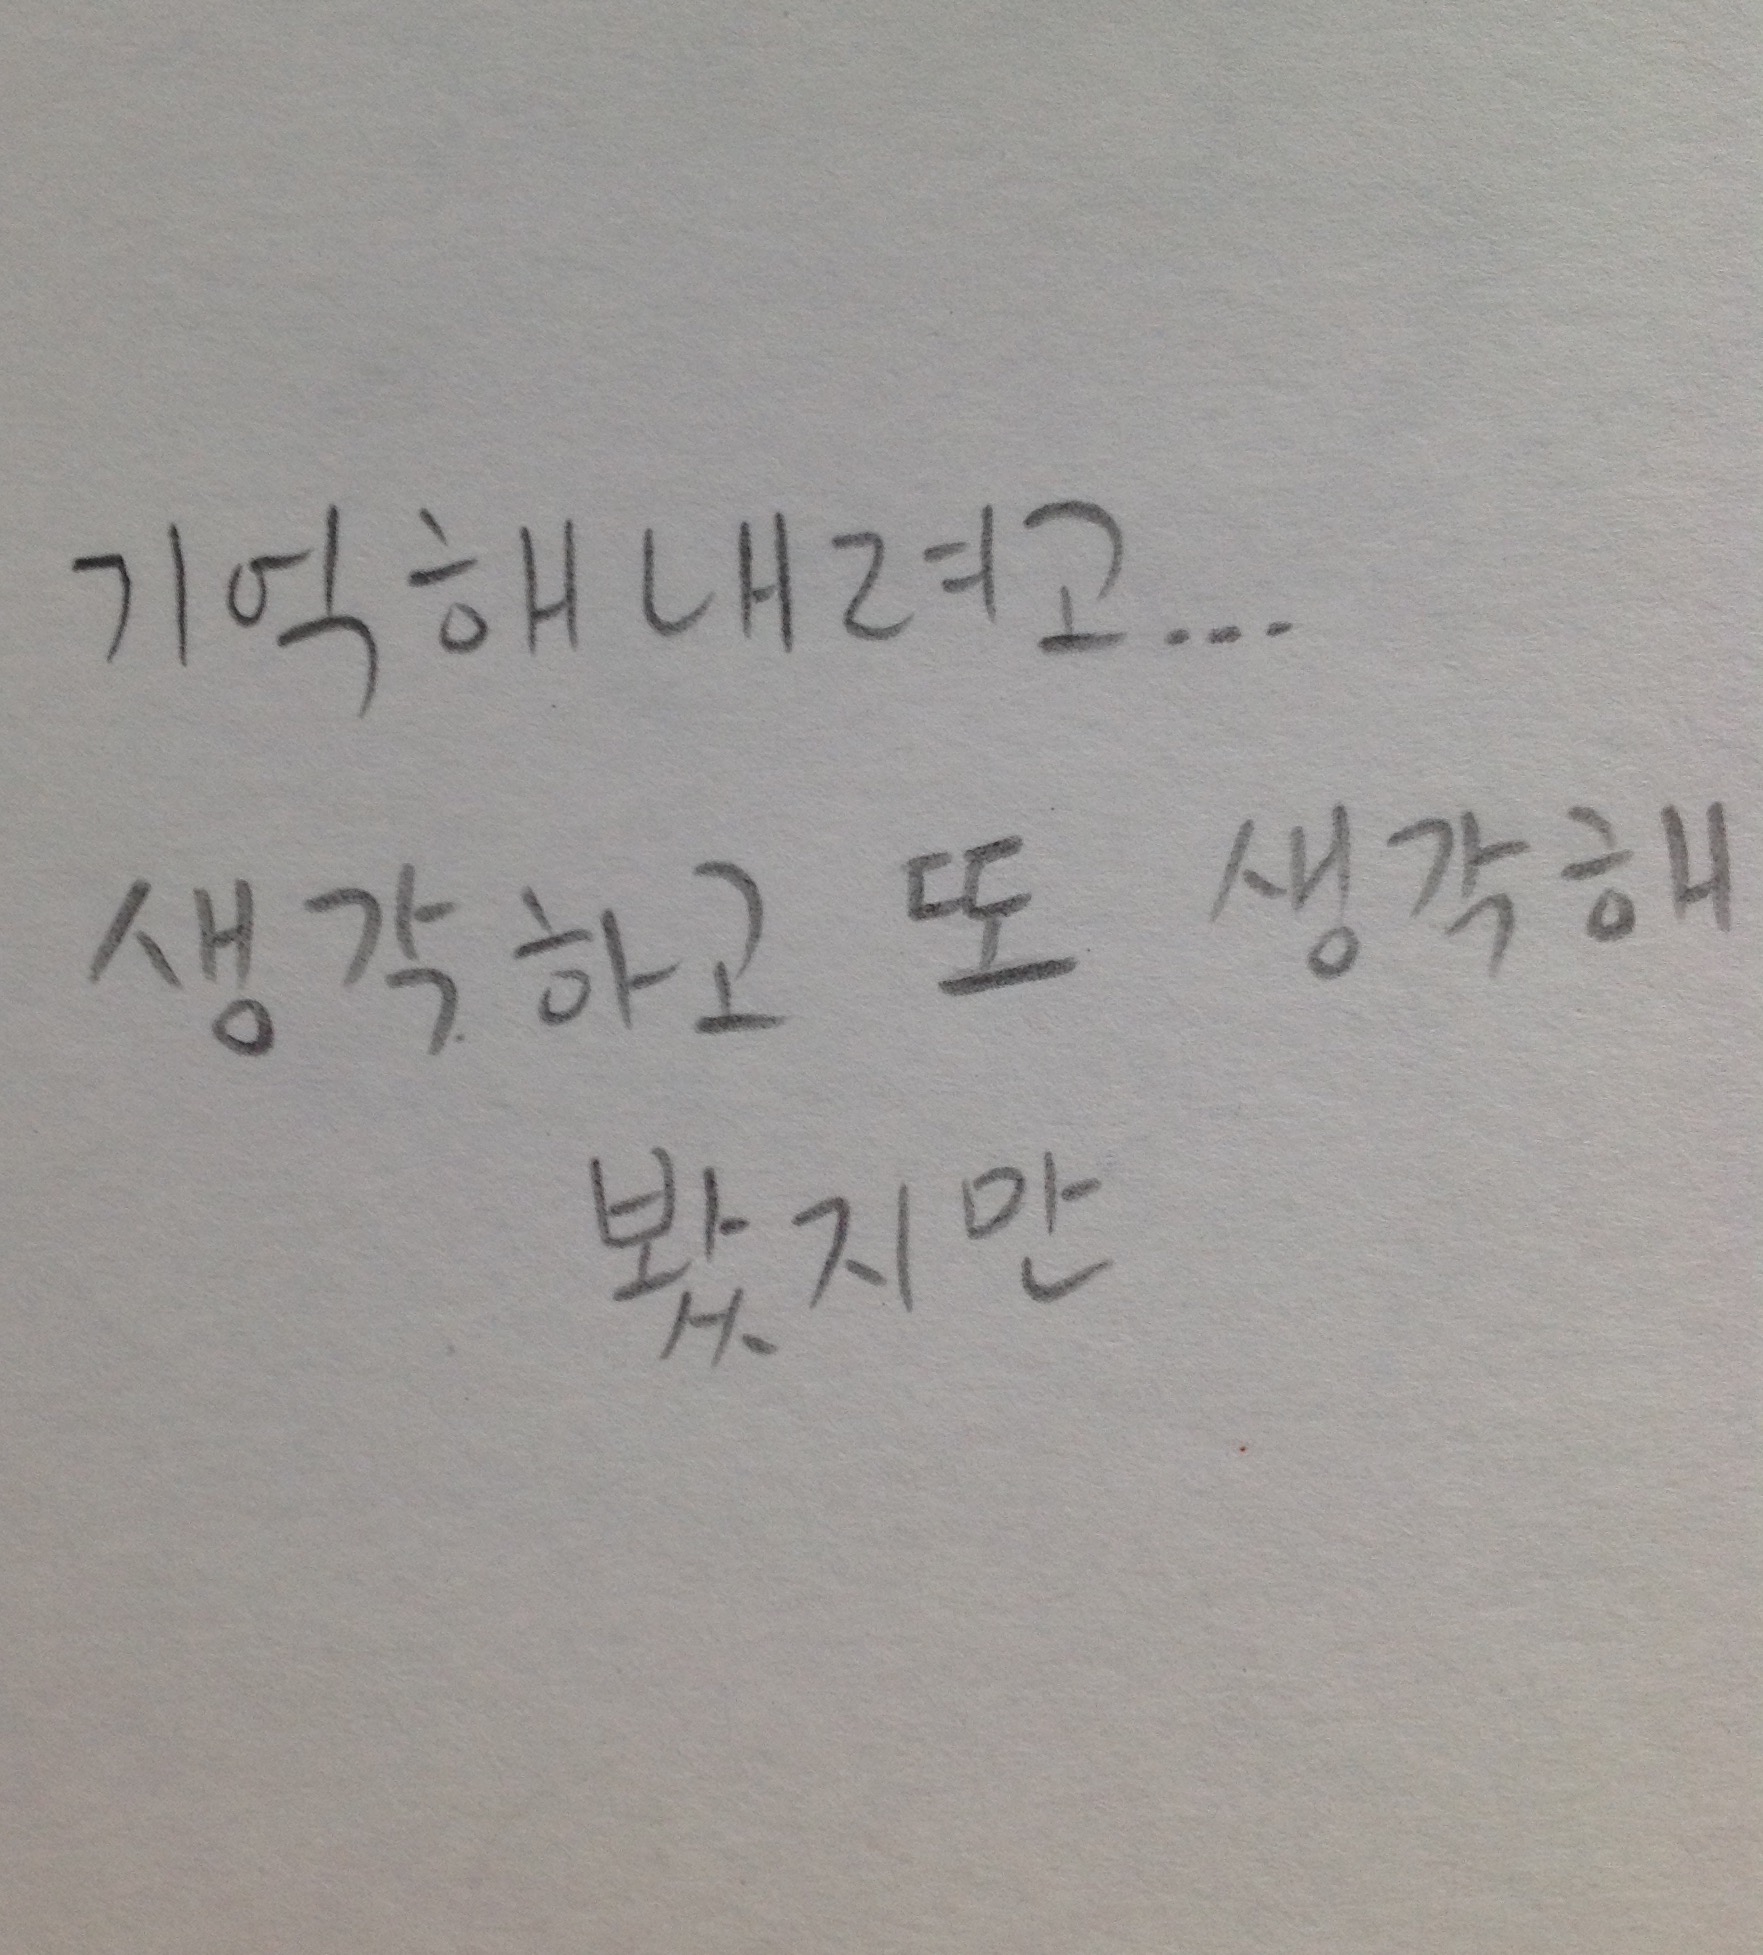 기억해내려고...
생각하고 또 생각해
봤지만